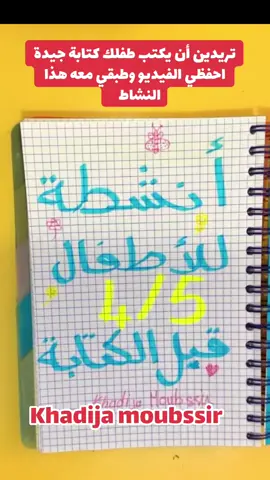 تريدين أن يكتب طفلك كتابة جيدة
احفظي الفيديو وطبقي معه هذا
النشاط
أنشطة
للأطفال
4/5
قبل الكتابة
Khadija Moubssir
Khadija moubssir